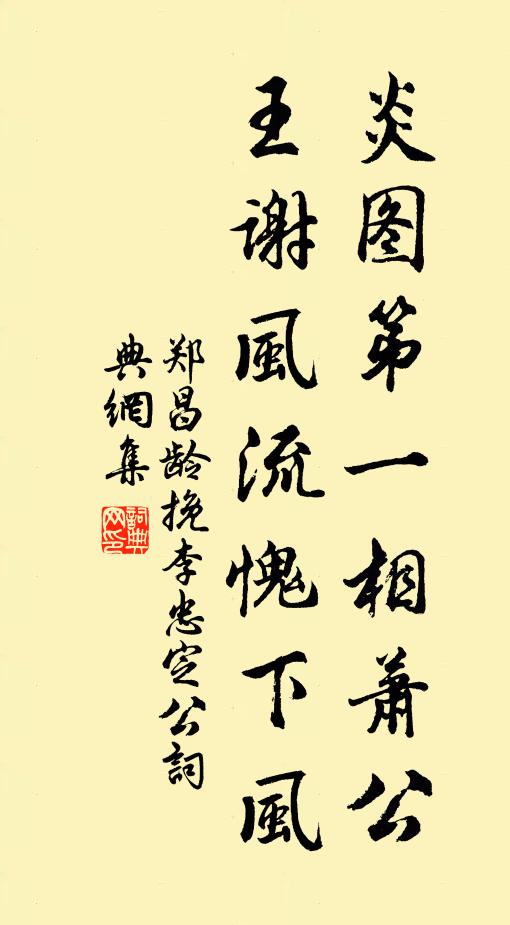 炎图第一相萧公
王谢風流愧下風
郑昌龄挽李忠定公詞
典網集
詞典网印